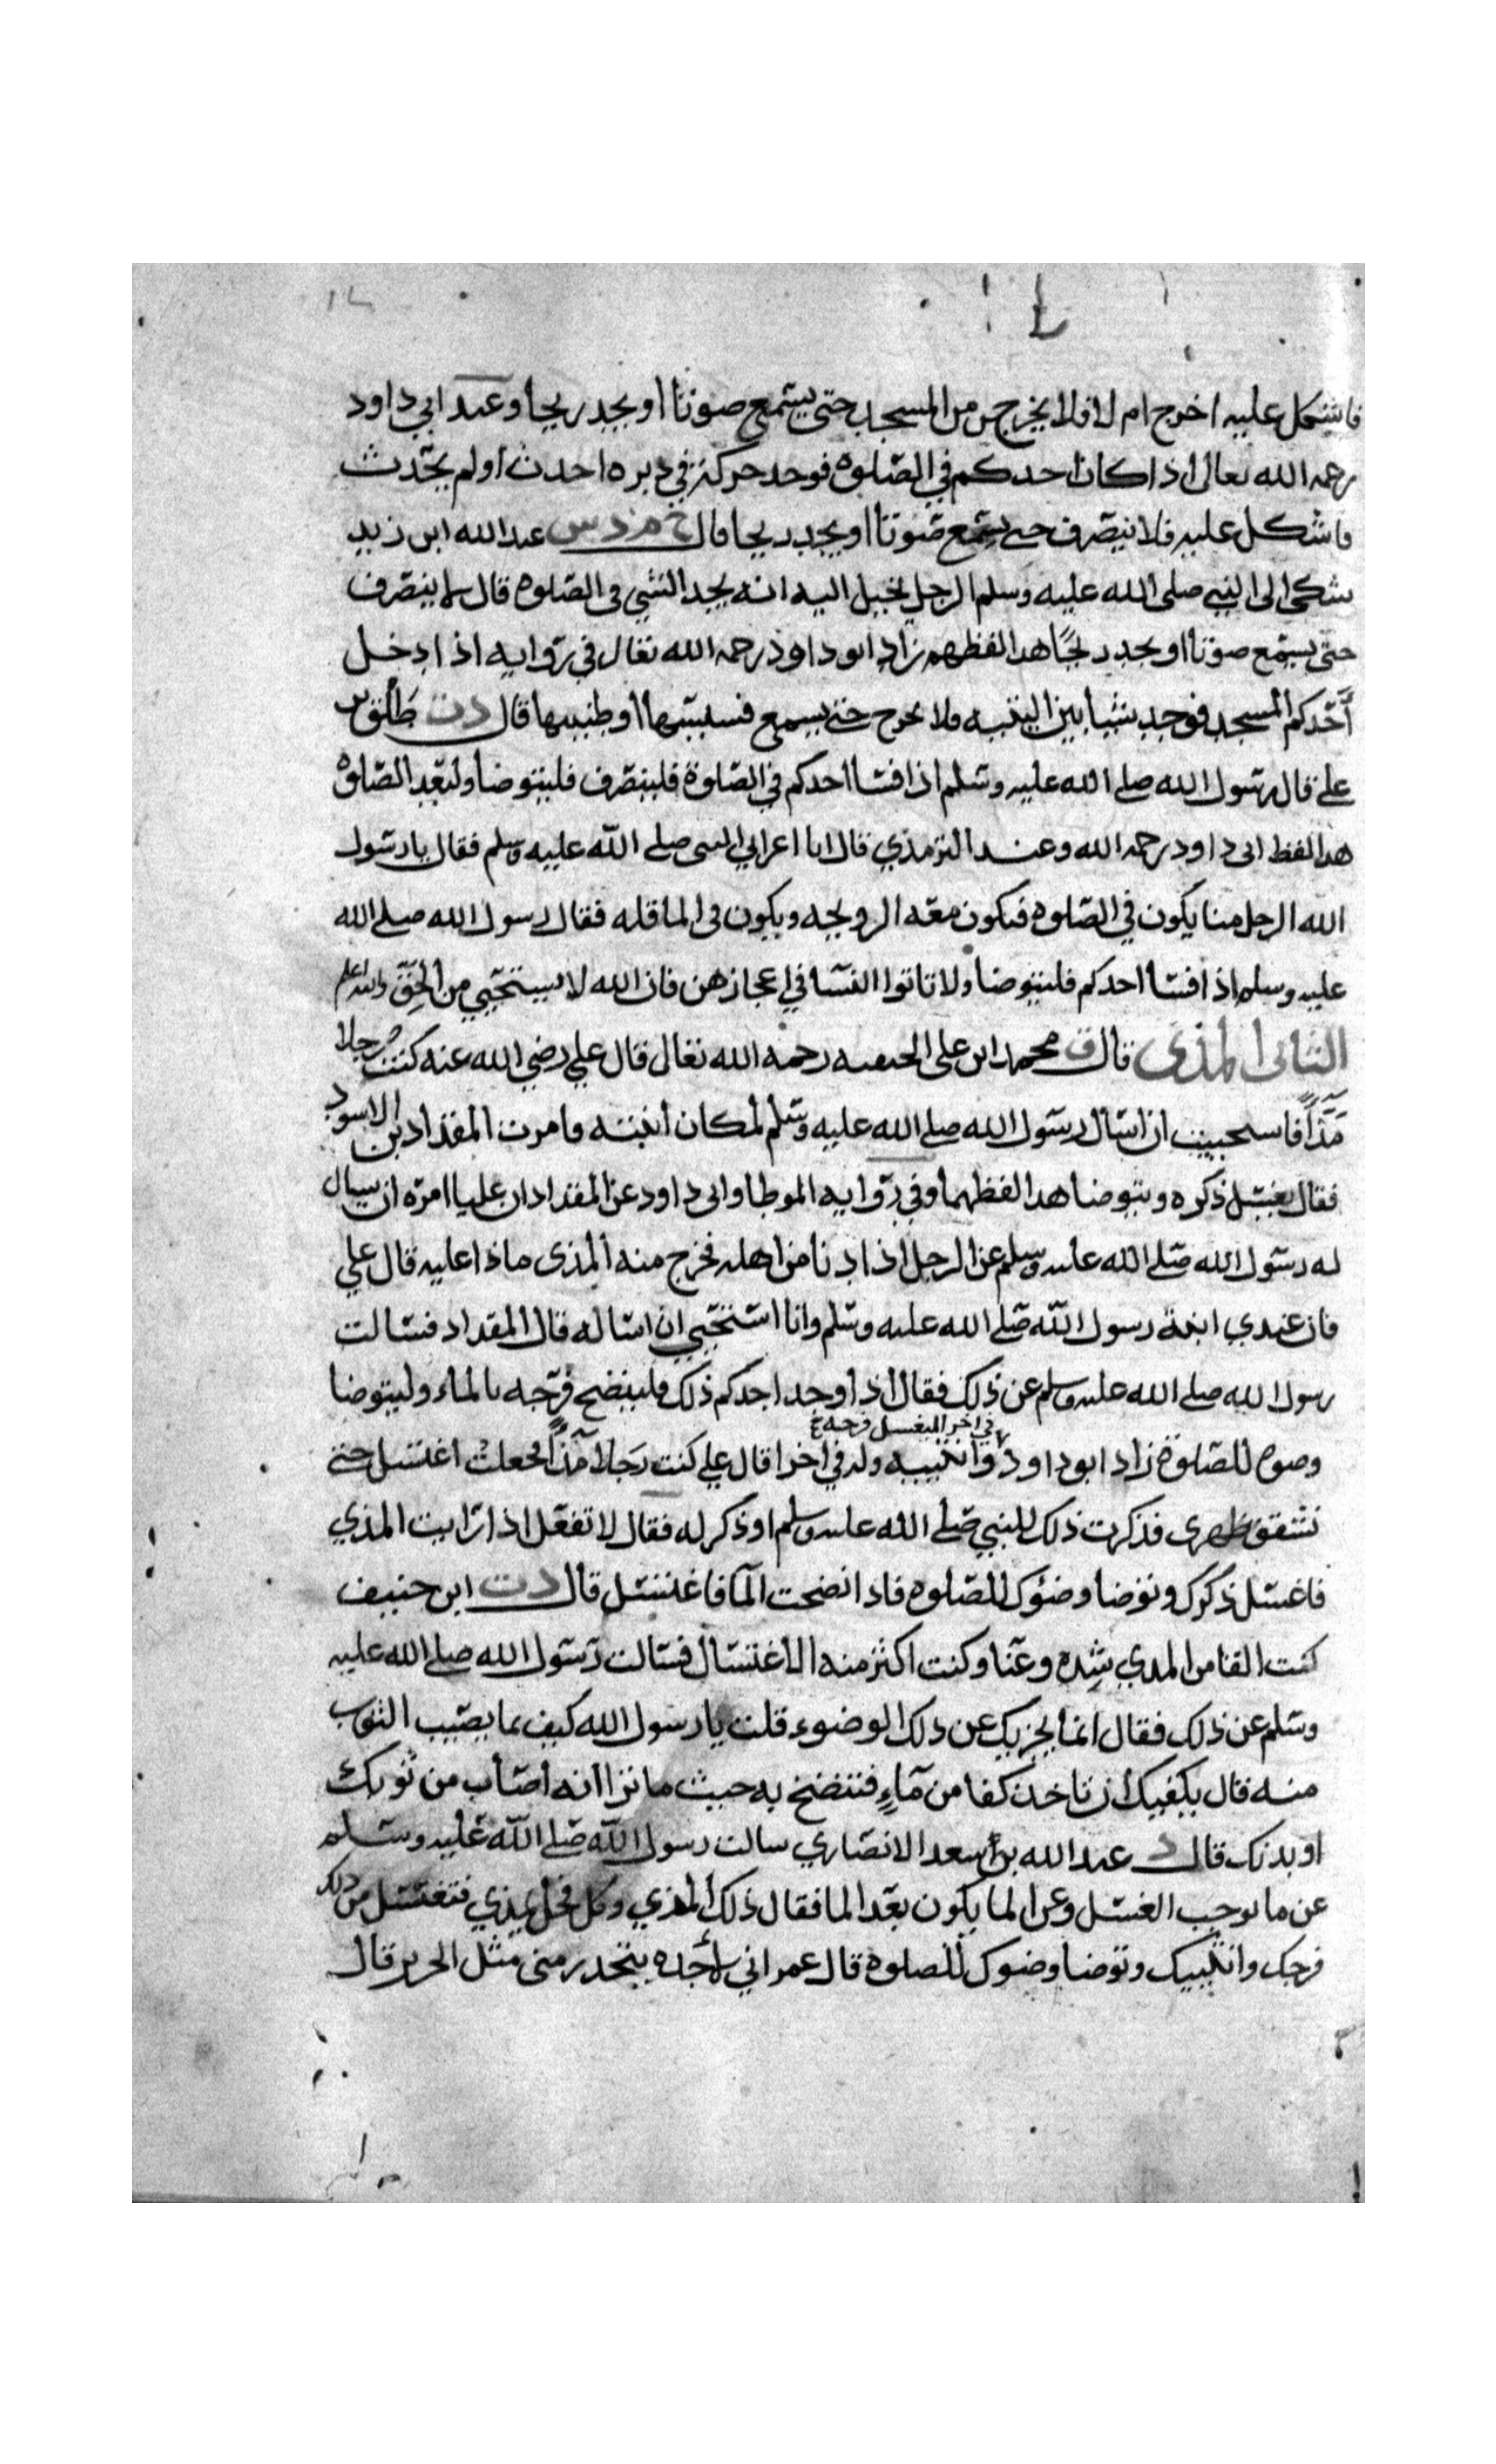 فاشكل عليه اخرج ام لا فلا يخرجن من المسجد حتى يسمع صوتا او يجد ريحا وعند ابي داود
رحمه الله تعالى اذا كان احدكم في الصلوة فوجد حركة في دبره احدث او لم يحدث
فاشكل عليه فلا ينصرف حتى يسمع صوتا او يجد ريحا قال خ م د س عبد الله ابن زيد
شكى الى النبي صلى الله عليه وسلم الرجل يخيل اليه انه يجد الشي في الصلوة قال لا ينصرف
حتى يسمع صوتا او يجد ريحًا هدا لفظهم زاد ابو داود رحمه الله تعالى في رواية اذا دخل
احدكم المسجد فوجد شيا بين اليتيه فلا يخرج حتى يسمع فسيسها او طنينها قال د ت طلق بن
علي قال رسول الله صلى الله عليه وسلم اذا فسا احدكم في الصلوة فلينصرف فليتوضا وليعد الصلوة
هدا لفظ ابي داود رحمه الله وعند الترمذي قال اتا اعرابي النبي صلى الله عليه وسلم فقال يا رسول
الله الرجل منا يكون في الصلوة فتكون معه الرويحه ويكون في الما قله فقال رسول الله صلى الله
عليه وسلم اذا فسا احدكم فليتوضا ولا تاتوا النسا في اعجازهن فان الله لا يستحيي من الحق والله اعلم
الثاني المذي قال ق محمد ابن علي الحنفيه رحمه الله تعالى قال علي رضي الله عنه كنت رجلا
مذاً فاستحييت ان اسال رسول الله صلى الله عليه وسلم لمكان ابنته فامرت المقداد بن الاسود
فقال يغسل ذكره ويتوضا هدا لفظهما وفي رواية الموطا وابي داود عن المقداد ان عليا امره ان يسال
له رسول الله صلى الله عليه وسلم عن الرجل اذا دنا من اهله فخرج منه المذى ماذا عليه قال علي
فان عندي ابنة رسول الله صلى الله عليه وسلم وانا استحيي ان اساله قال المقداد فسالت
رسول الله صلى الله عليه وسلم عن ذلك فقال اذا وجد احدكم ذلك فلينضح فرجه بالماء وليتوضا
في اخر ليغسل فرجه خ
وضوه للصلوة زاد ابو داود وانثييه وله في اخرا قال علي كنت رجلا مذاً فجعلت اغتسل حتى
تشقق ظهرى فذكرت ذلك للنبي صلى الله عليه وسلم او ذكر له فقال لا تفعل اذا رايت المذي
فاغسل ذكرك وتوضا وضوك للصلوة فاذا نضحت الما فاغتسل قال د ت ابن حنيف
كنت القا من المدي شده وعنا وكنت اكثر منه الاغتسال فسالت رسول الله صلى الله عليه
وسلم عن ذلك فقال انما يجزيك عن ذلك الوضوء قلت يا رسول الله كيف بما يصيب الثوب
منه قال يكفيك ان تاخذ كفا من مآءٍ فتنضح به حيث ما ترا انه اصاب من ثوبك
او بدنك قال د عبد الله بن سعد الانصاري سالت رسول الله صلى الله عليه وسلم
عن ما يوجب الغسل وعن الما يكون بعد الما فقال ذلك المذي وكل فحل يمذي فتغسل من ذلك
فرجك وانثييك وتوضا وضوك للصلوة قال عمر اني لأجده يتحدر منى مثل الحرير قال